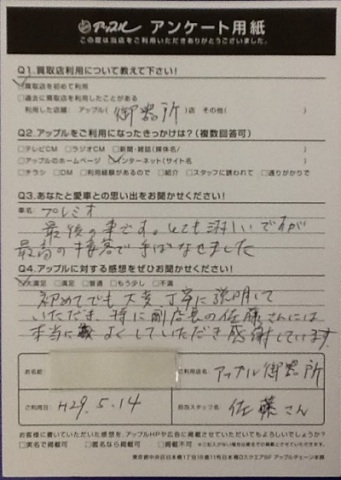 アップル アンケート用紙
この度は当店をご利用いただきありがとうございました。
Q1.買取店利用について教えて下さい!
☑買取店を初めて利用
□過去に買取店を利用したことがある
利用した店舗 アップル( 御器所 )店 その他( )
Q2.アップルをご利用になったきっかけは?(複数回答可)
□テレビCM □ラジオCM □新聞・雑誌(媒体名/ )
□アップルのホームページ ☑インターネット(サイト名 )
□チラシ □DM □利用経験があるので □紹介 □スタッフに誘われて □通りがかりで
Q3.あなたと愛車との思い出をお聞かせください!
車名 プレミオ
最後の車です。とても淋しいですが
最高の接客で手ばなせました
Q4.アップルに対する感想をぜひお聞かせください!
☑大満足 □満足 □普通 □もう少し □不満
初めてでも大変丁寧に説明して
いただき、特に副店長の佐藤さんには
本当によくしていただき感謝しています
お名前 ご利用店名 アップル御器所
ご利用日 H29.5.14 担当スタッフ名 佐藤さん
お客様に書いていただいた感想を、アップルHPや広告に掲載させていただいてもよろしいでしょうか?
□実名で掲載可 □匿名なら掲載可 □掲載不可
アップルチェーン本部